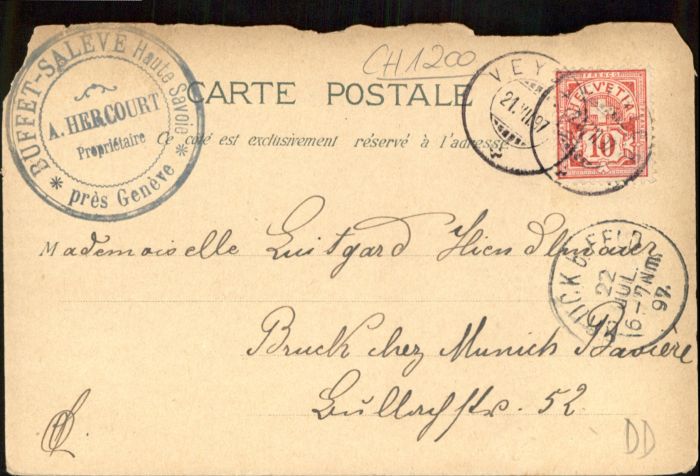 BUFFET-SALÈVE Haute Savoie
A. HERCOURT
Propriétaire
* près Genève *
CH1200
CARTE POSTALE
Ce côté est exclusivement réservé à l'adresse
VEY
21.VII.97
FRANCO
HELVETIA
10
Mademoiselle Luitgard Hiendlmaier
BRUCK b. FFLD.
22
JUL.
6-7 Nm.
97.
Bruck chez Munich Bavière
Gullachstr. 52.
DD